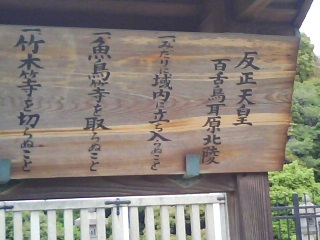 反正天皇
百舌鳥耳原北陵
一みだりに域内に立ち入らぬこと
一魚鳥等を取らぬこと
一竹木等を切らぬこと